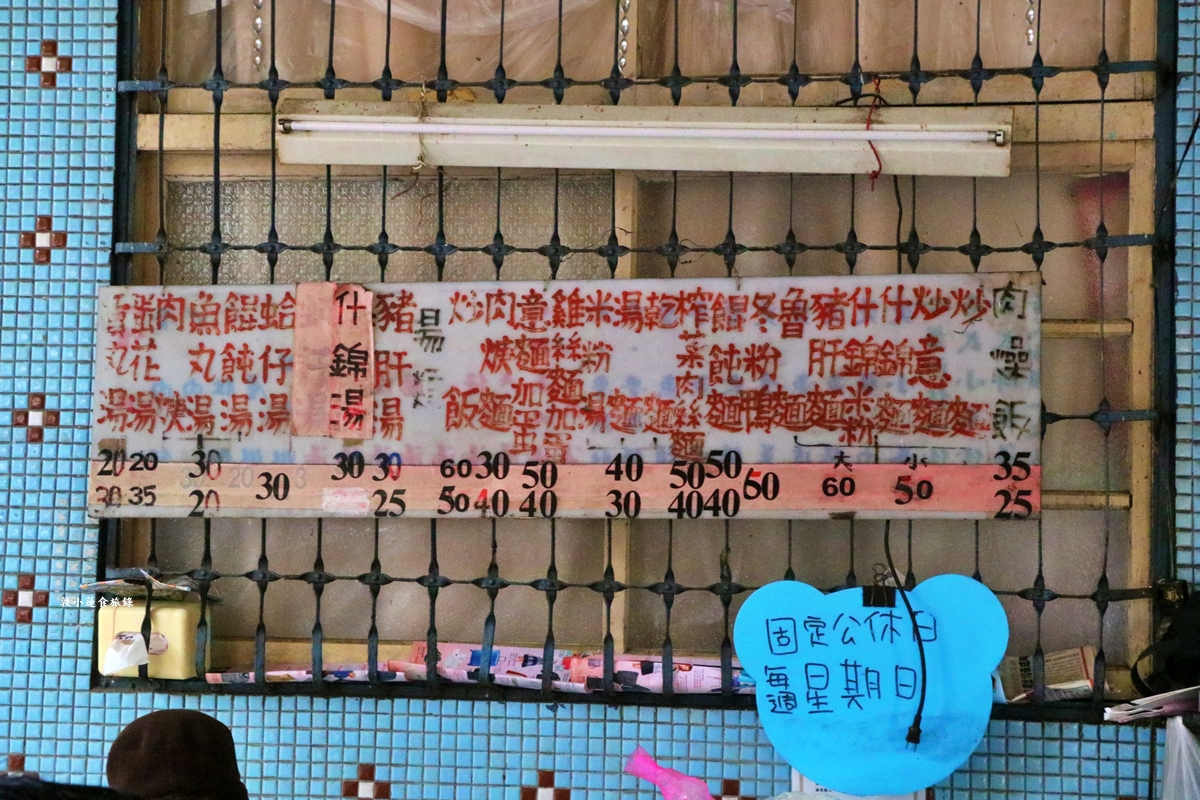 肉燥飯
炒麵
炒意麵
什錦麵
什錦米粉
豬肝麵
魯麵
冬粉鴨
餛飩麵
榨菜肉絲麵
乾麵
湯麵
米粉湯
雞絲麵加蛋
意麵加蛋
肉焿麵
炒飯
豬肝湯
什錦湯
蛤仔湯
餛飩湯
魚丸湯
肉焿
蛋花湯
丸湯
20 20 30 30 30 60 30 50 40 50 50 大 小 35
30 35 20 30 25 50 40 40 30 40 40 60 60 50 25
固定公休日
每週星期日
敦小蓮食旅錄